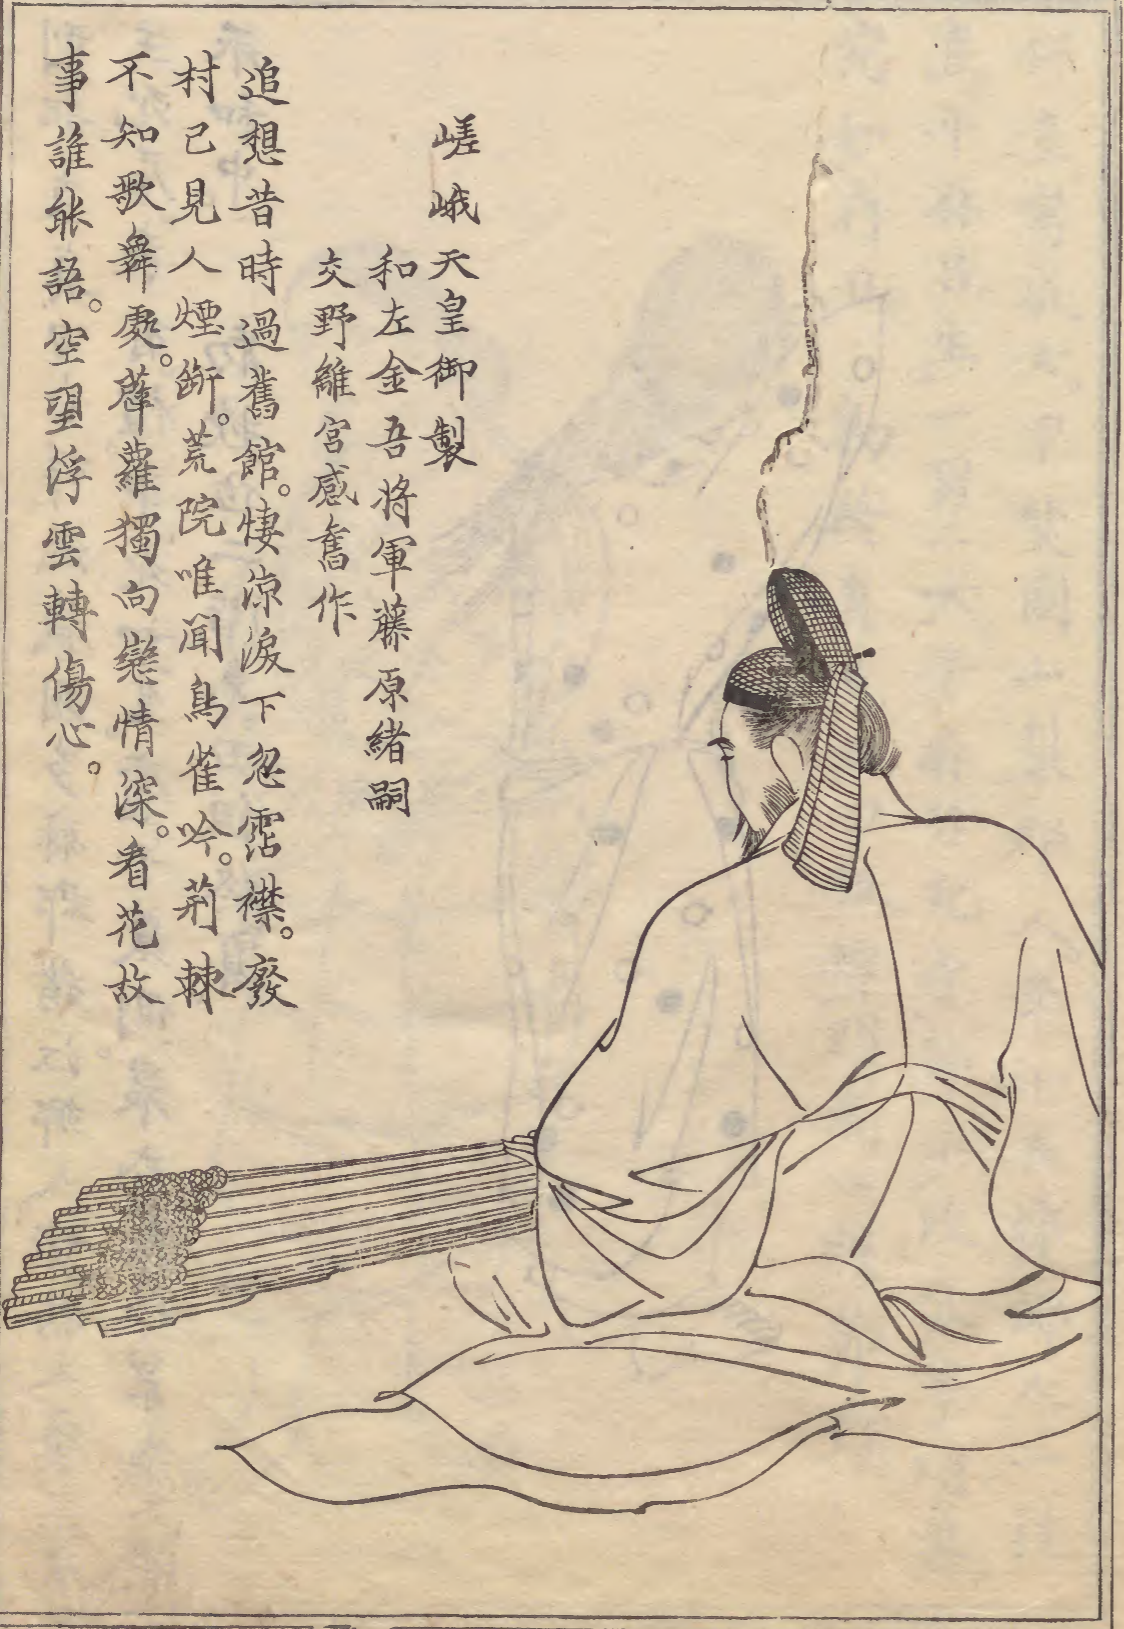 嵯峨天皇御製
和左金吾将軍藤原緒嗣
交野離宮感舊作
追想昔時過舊館。悽涼淚下忽霑襟。廢
村已見人煙斷。荒院唯聞鳥雀吟。荊棘
不知歌舞處。薜蘿獨向戀情深。看花故
事誰能語。空望浮雲轉傷心。